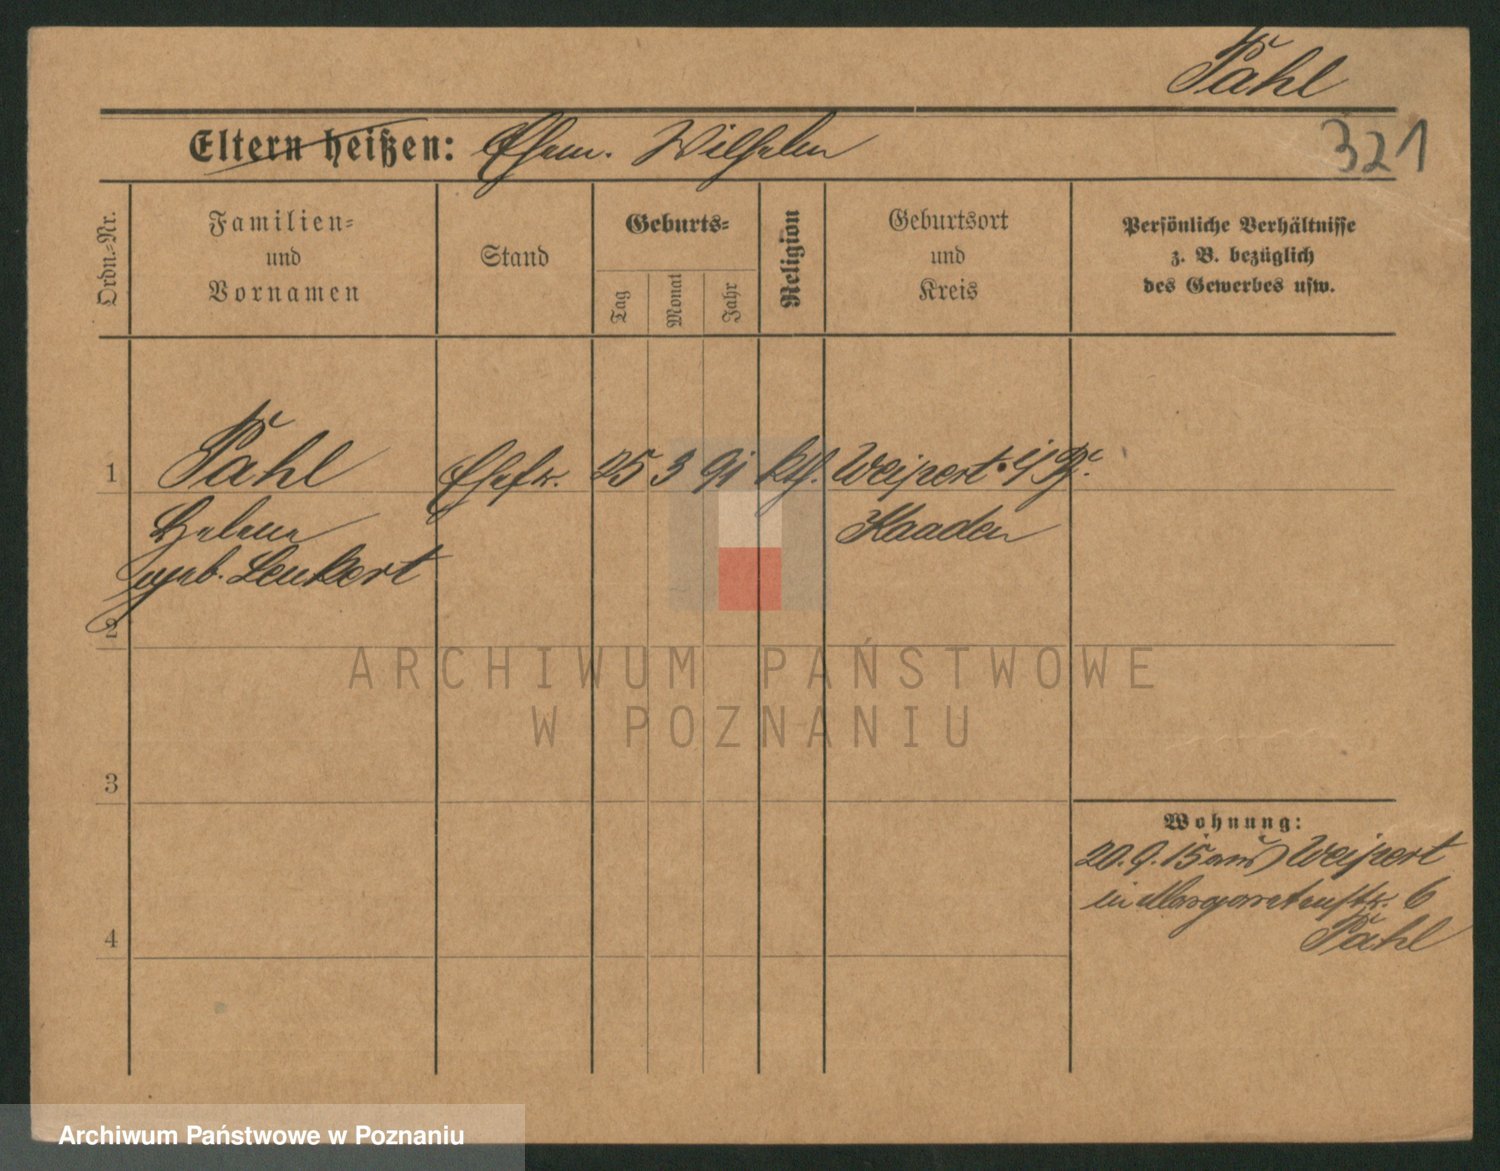 Pahl
Eltern heißen: Ehem. Wilhelm
321
Ordn.-Nr.
Familien-
und
Vornamen
Stand
Geburts-
Tag
Monat
Jahr
Religion
Geburtsort
und
Kreis
Persönliche Verhältnisse
z. B. bezüglich
des Gewerbes usw.
1
Pahl
Ehefr.
25
3
91
kth.
Weipert
Kaaden
Helene
geb. Leukert
2
ARCHIWUM PAŃSTWOWE
W POZNANIU
3
Wohnung:
20.9.15 aus Weipert
in Margaretenstr. 6
Pahl
4
Archiwum Państwowe w Poznaniu